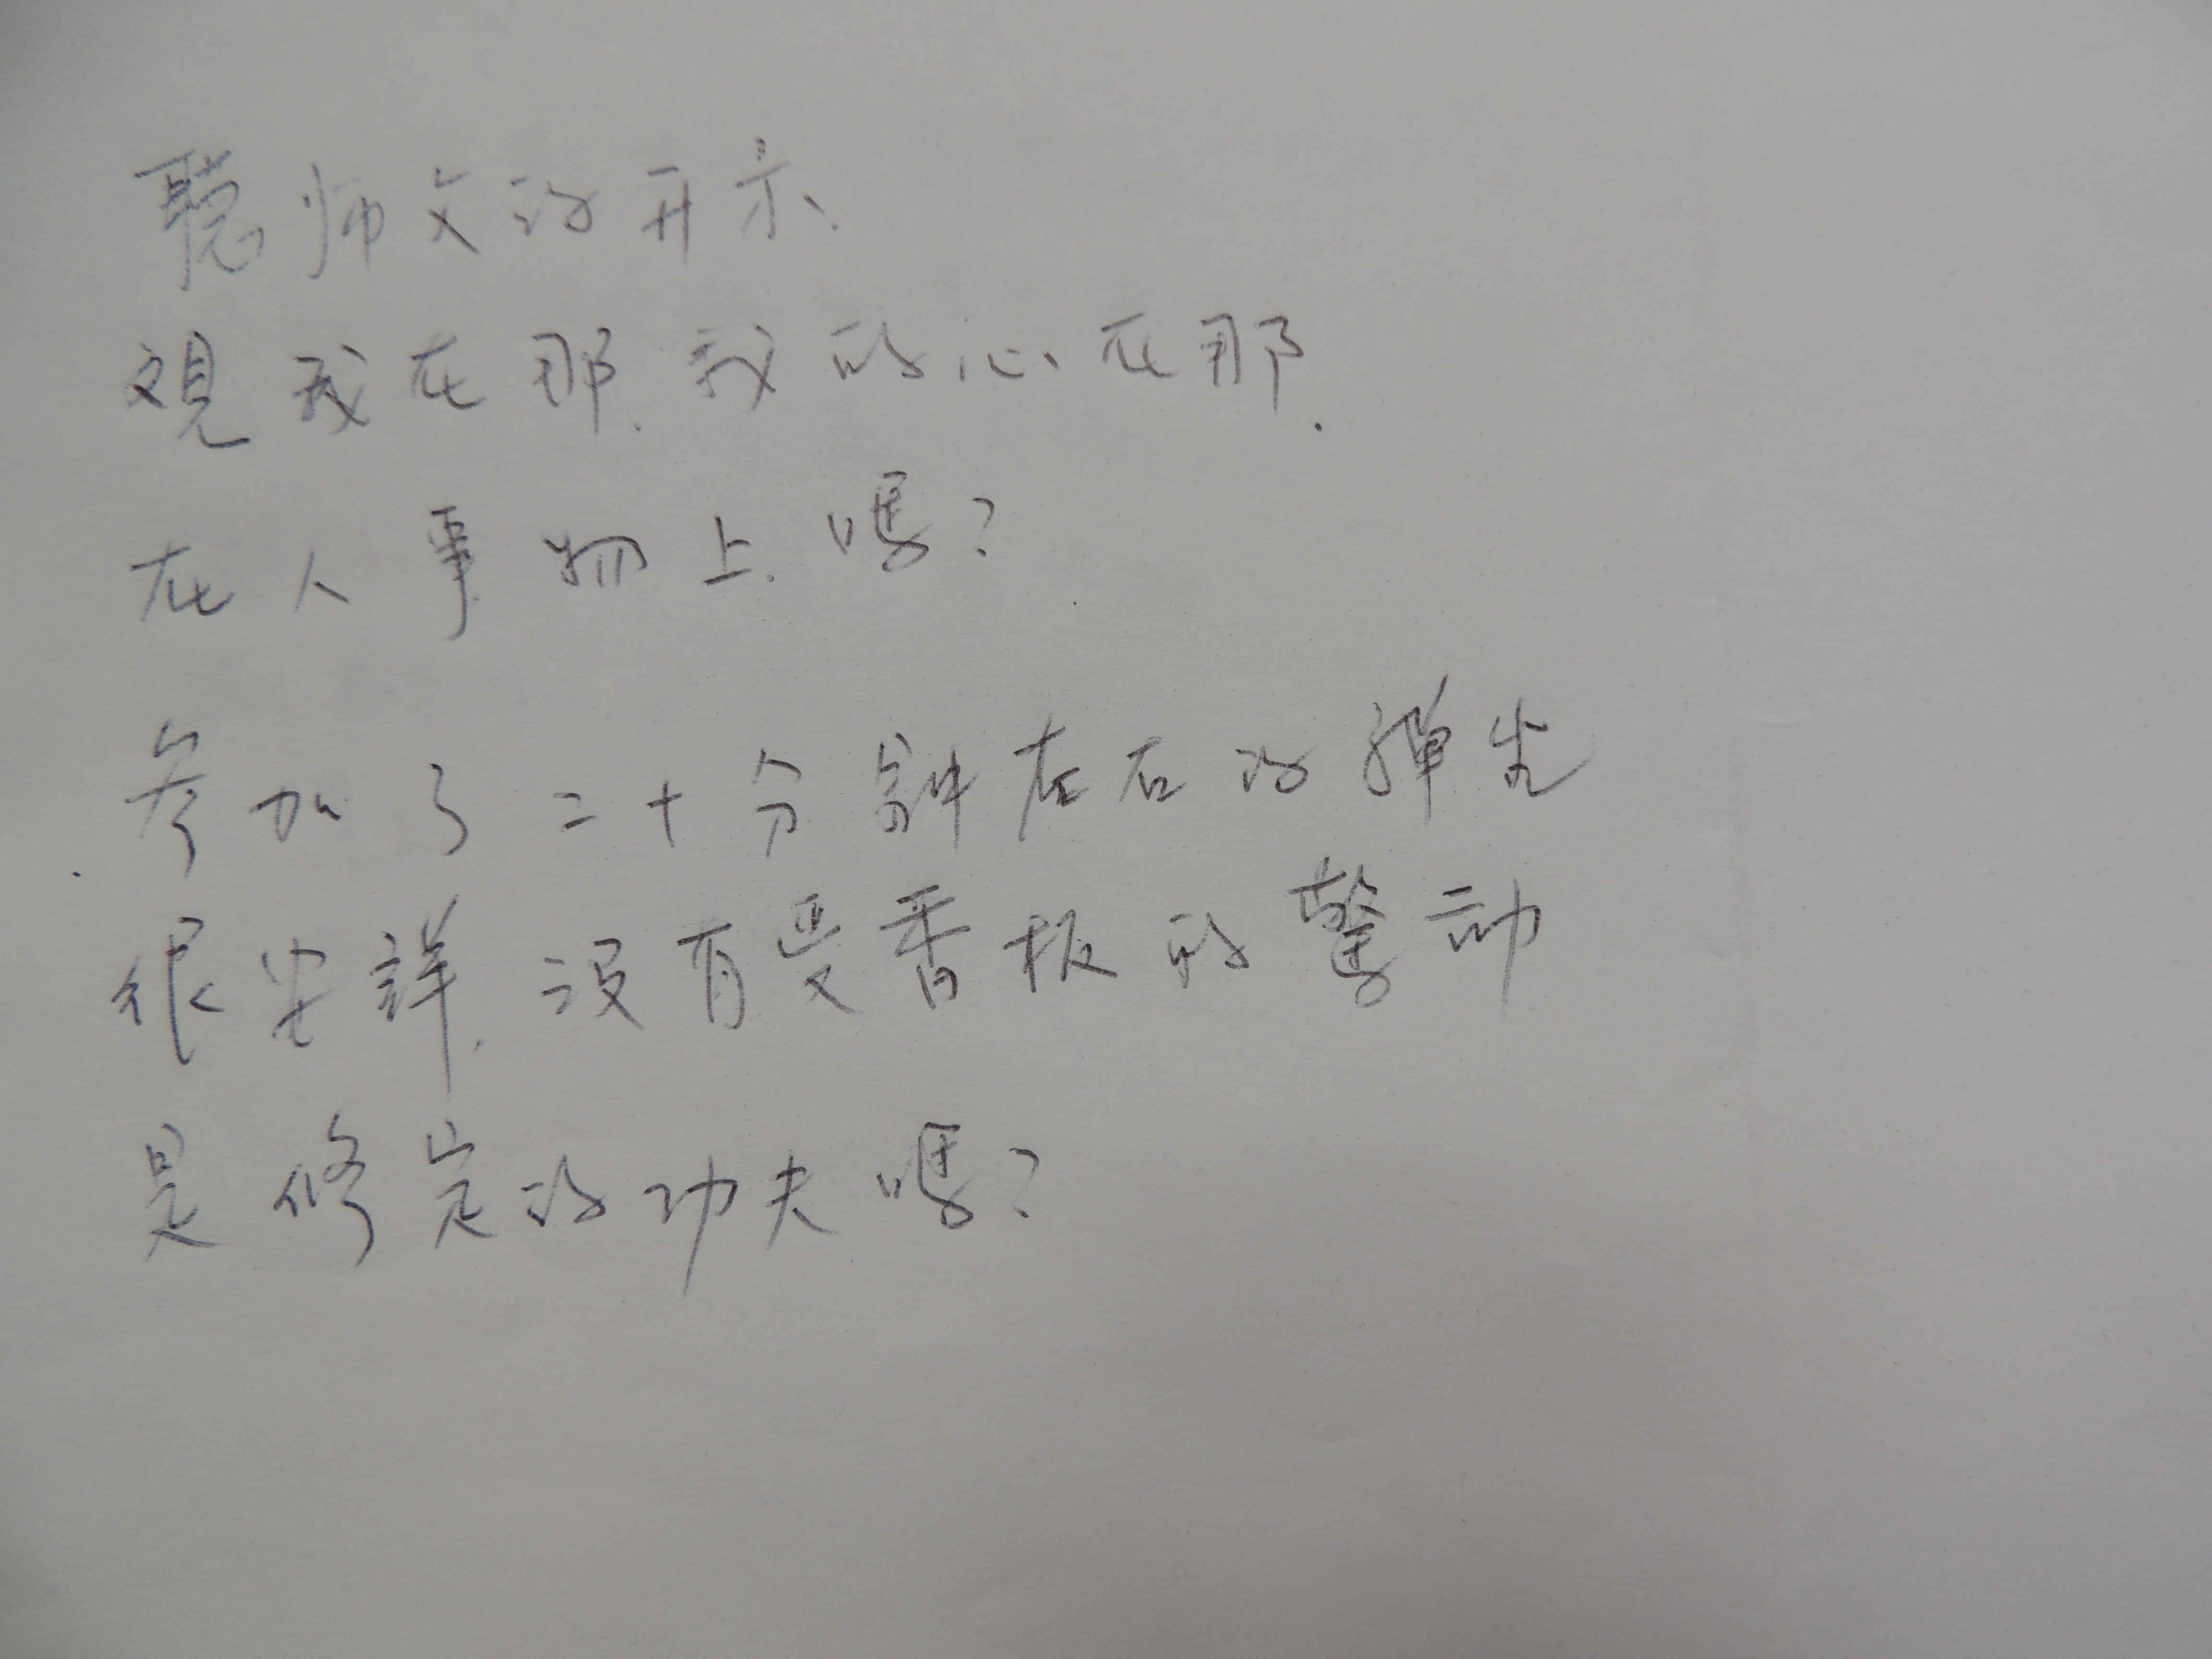 聽师父的开示.
覌我在那.我的心在那.
在人事物上嗎?
参加了二十分鈡左右的禅坐
很安詳.没有受香板的驚动
是修定的功夫嗎?